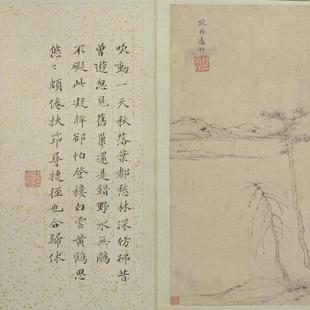 林遠
吹動一天秋落葉都愁林深仿彿昔
曾遊忽見舊巢還是錯野水無鷗
不礙此凝眸卻怕登樓白雲黃鶴思
悠〻頗倦扶筇尋捷徑也合歸休